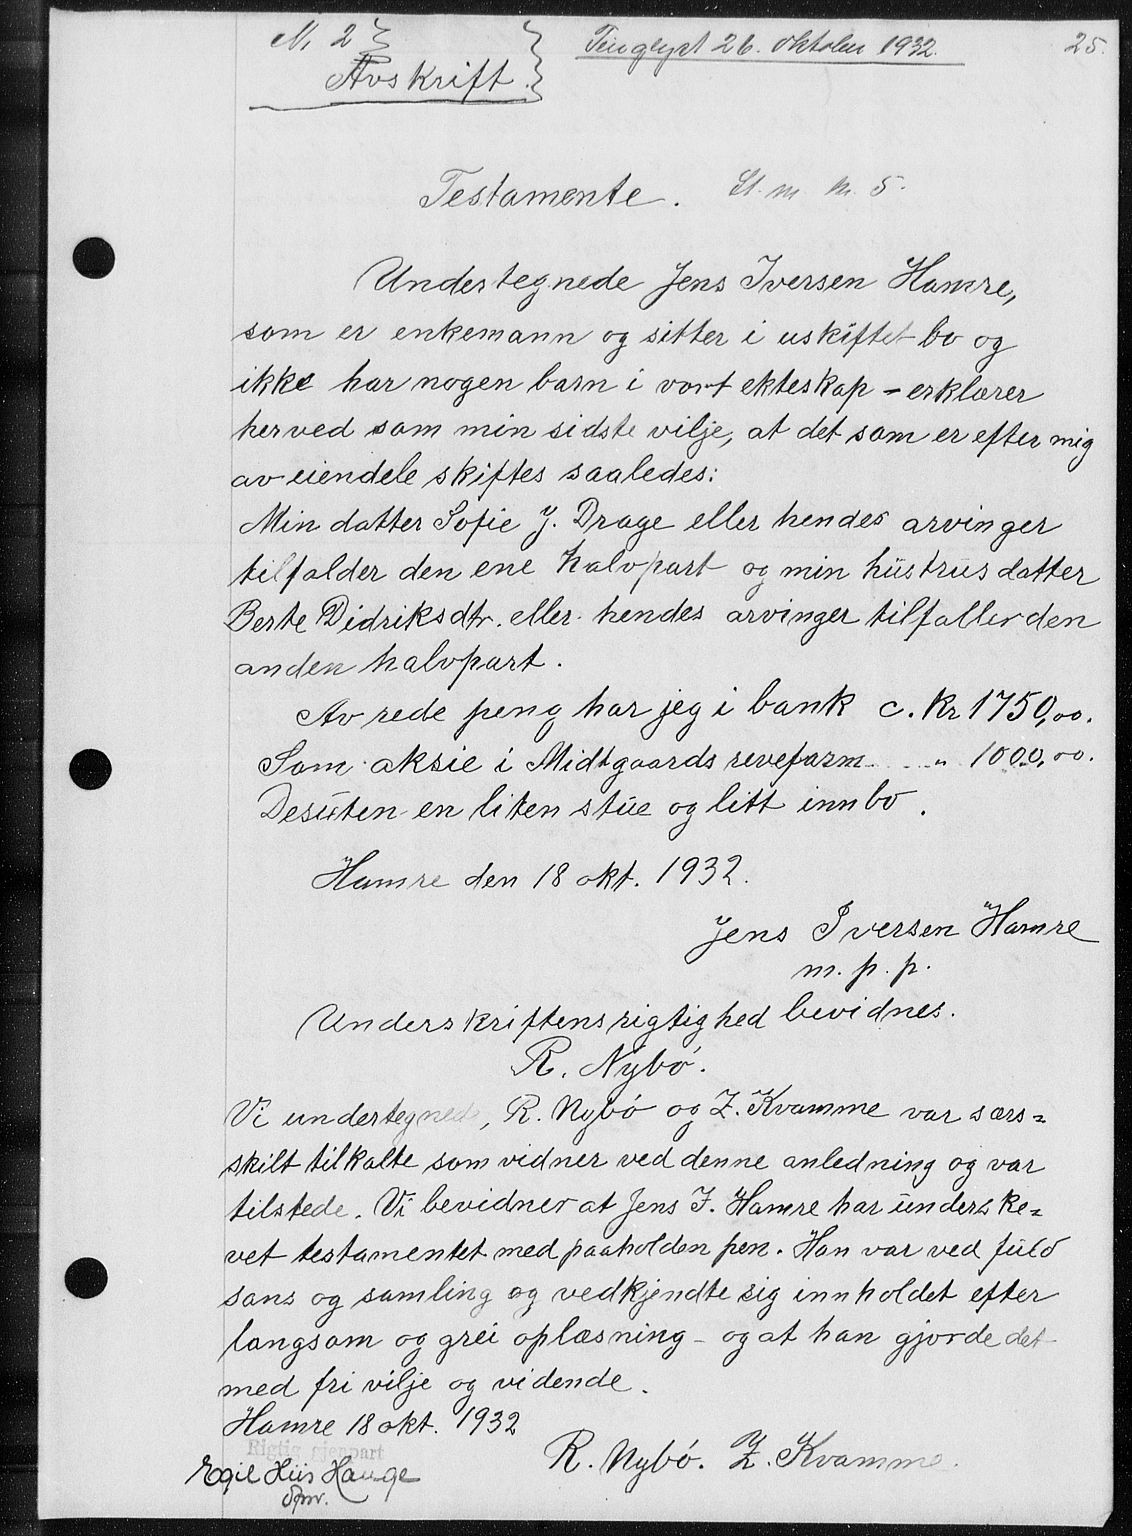 M. 2
Tinglyst 26. oktober 1932.
25.
Avskrift.
Testamente. St. m. N. 5.
Undertegnede Jens Iversen Hamre,
som er enkemann og sitter i uskiftet bo og
ikke har nogen barn i vort ekteskap - erklærer
herved som min sidste vilje, at det som er efter mig
av eiendele skiftes saaledes:
Min datter Sofie J. Drage eller hendes arvinger
tilfalder den ene halvpart og min hustrus datter
Berte Didriksdtr. eller hendes arvinger tilfaller den
anden halvpart.
Av rede peng har jeg i bank c. Kr 1750,00.
Som aksie i Midtgaards revefarm " 1000,00.
Desuten en liten stue og litt innbo.
Hamre den 18 okt. 1932.
Jens Iversen Hamre
m. p. p.
Underskriftens rigtighed bevidnes.
R. Nybö.
Vi undertegnede, R. Nybö og Z. Kvamme var særs=
skilt tilkalte som vidner ved denne anledning og var
tilstede. Vi bevidner at Jens I. Hamre har underske=
vet testamentet med paaholden pen. Han var ved fuld
sans og samling og vedkjendte sig innholdet efter
langsom og grei oplæsning - og at han gjorde det
med fri vilje og vidende.
Hamre 18 okt. 1932
Rigtig gjenpart
R. Nybö. Z. Kvamme.
Egil Hiis Hauge